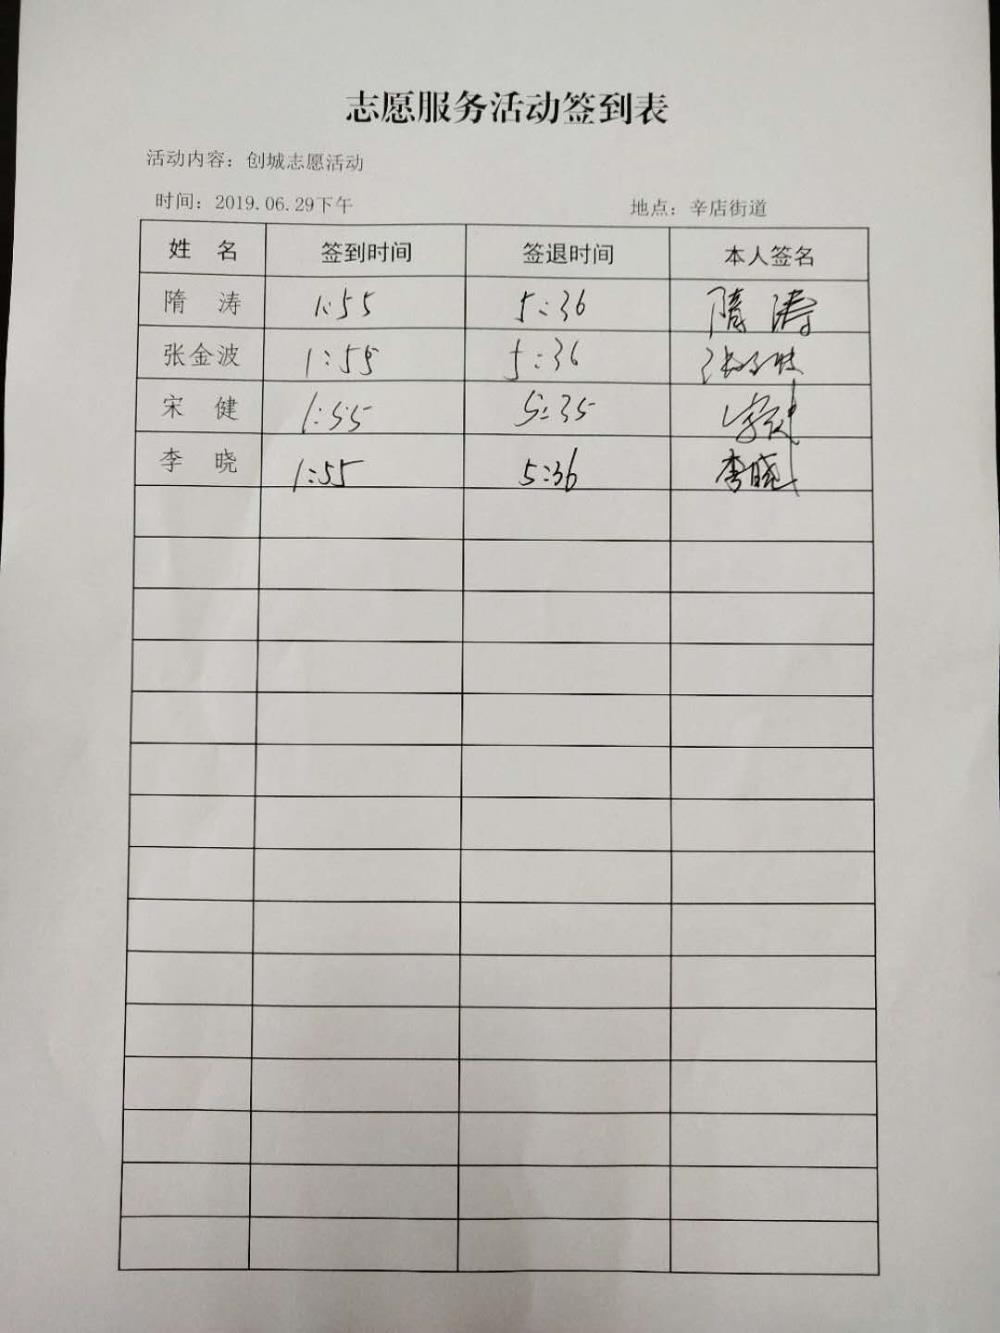 志愿服务活动签到表
活动内容：创城志愿活动
时间：2019.06.29下午 地点：辛店街道
姓 名 签到时间 签退时间 本人签名
隋 涛 1:55 5:36 隋 涛
张金波 1:55 5:36 张金波
宋 健 1:55 5:35 宋健
李 晓 1:55 5:36 李晓